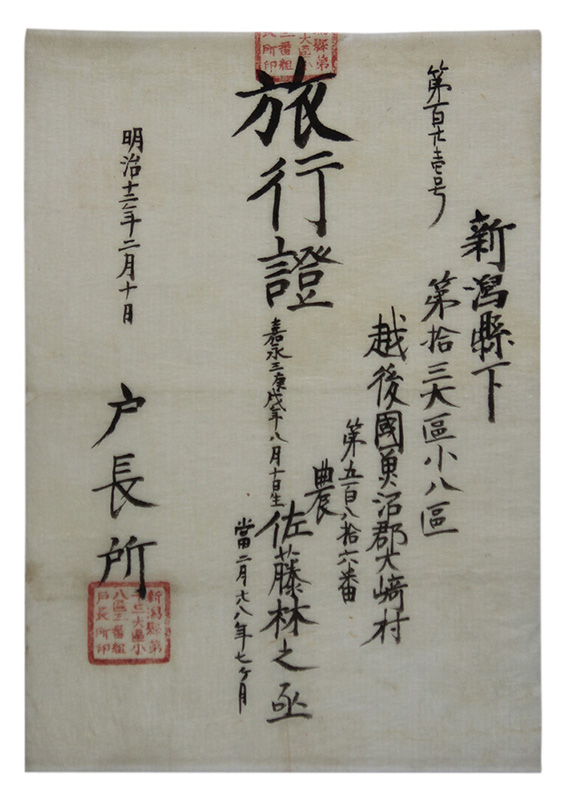 第百廿壱号
新潟縣下
第拾三大區小八區
越後國魚沼郡大﨑村
第五百八拾六番
農
旅行證
嘉永三庚戌年八月十日生
佐藤林之丞
當二月廿八年七ヶ月
明治十二年二月十日
戸長所
新潟縣第
十三大區小
八區三番組
戸長所印